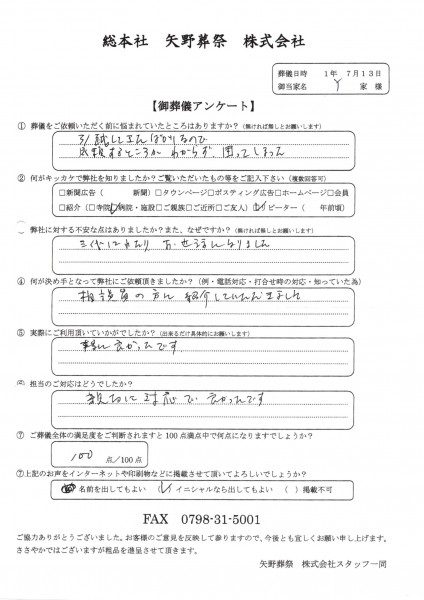 総本社 矢野葬祭 株式会社
葬儀日時 1年 7月13日
御当家名 Y 家 様
【御葬儀アンケート】
① 葬儀をご依頼いただく前に悩まれていたところはありますか？（無ければ無しとお願いします）
引越して来たばかりなので
依頼するところがわからず、困ってしまった
② 何がキッカケで弊社を知りましたか？ご覧いただいたもの等をご記入下さい（複数回答可）
□新聞広告（ 新聞）□タウンページ□ポスティング広告□ホームページ□会員
□紹介（□寺院□病院・施設□ご親族□ご近所□ご友人）□リピーター（ 年前頃）
弊社に対する不安な点はありましたか？また、なぜですか？（無ければ無しとお願いします）
三代にわたり お世話になりました
④ 何が決め手となって弊社にご依頼頂きましたか？（例・電話対応・打合せ時の対応・知っていた為）
相談員の方に紹介していただきました
⑤ 実際にご利用頂いていかがでしたか？（出来るだけ具体的にお願いします）
良かったです
担当のご対応はどうでしたか？
親切に対応で良かったです
⑦ ご葬儀全体の満足度をご判断されますと100点満点中で何点になりますでしょうか？
100 点／100点
⑦上記のお声をインターネットや印刷物などに掲載させて頂いてよろしいでしょうか？
名前を出してもよい （レ）イニシャルなら出してもよい （ ）掲載不可
FAX 0798-31-5001
ご協力ありがとうございました。お客様のご意見を反映して参りますので、今後とも宜しくお願い申し上げます。
ささやかではございますが粗品を進呈させて頂きます。
矢野葬祭 株式会社スタッフ一同